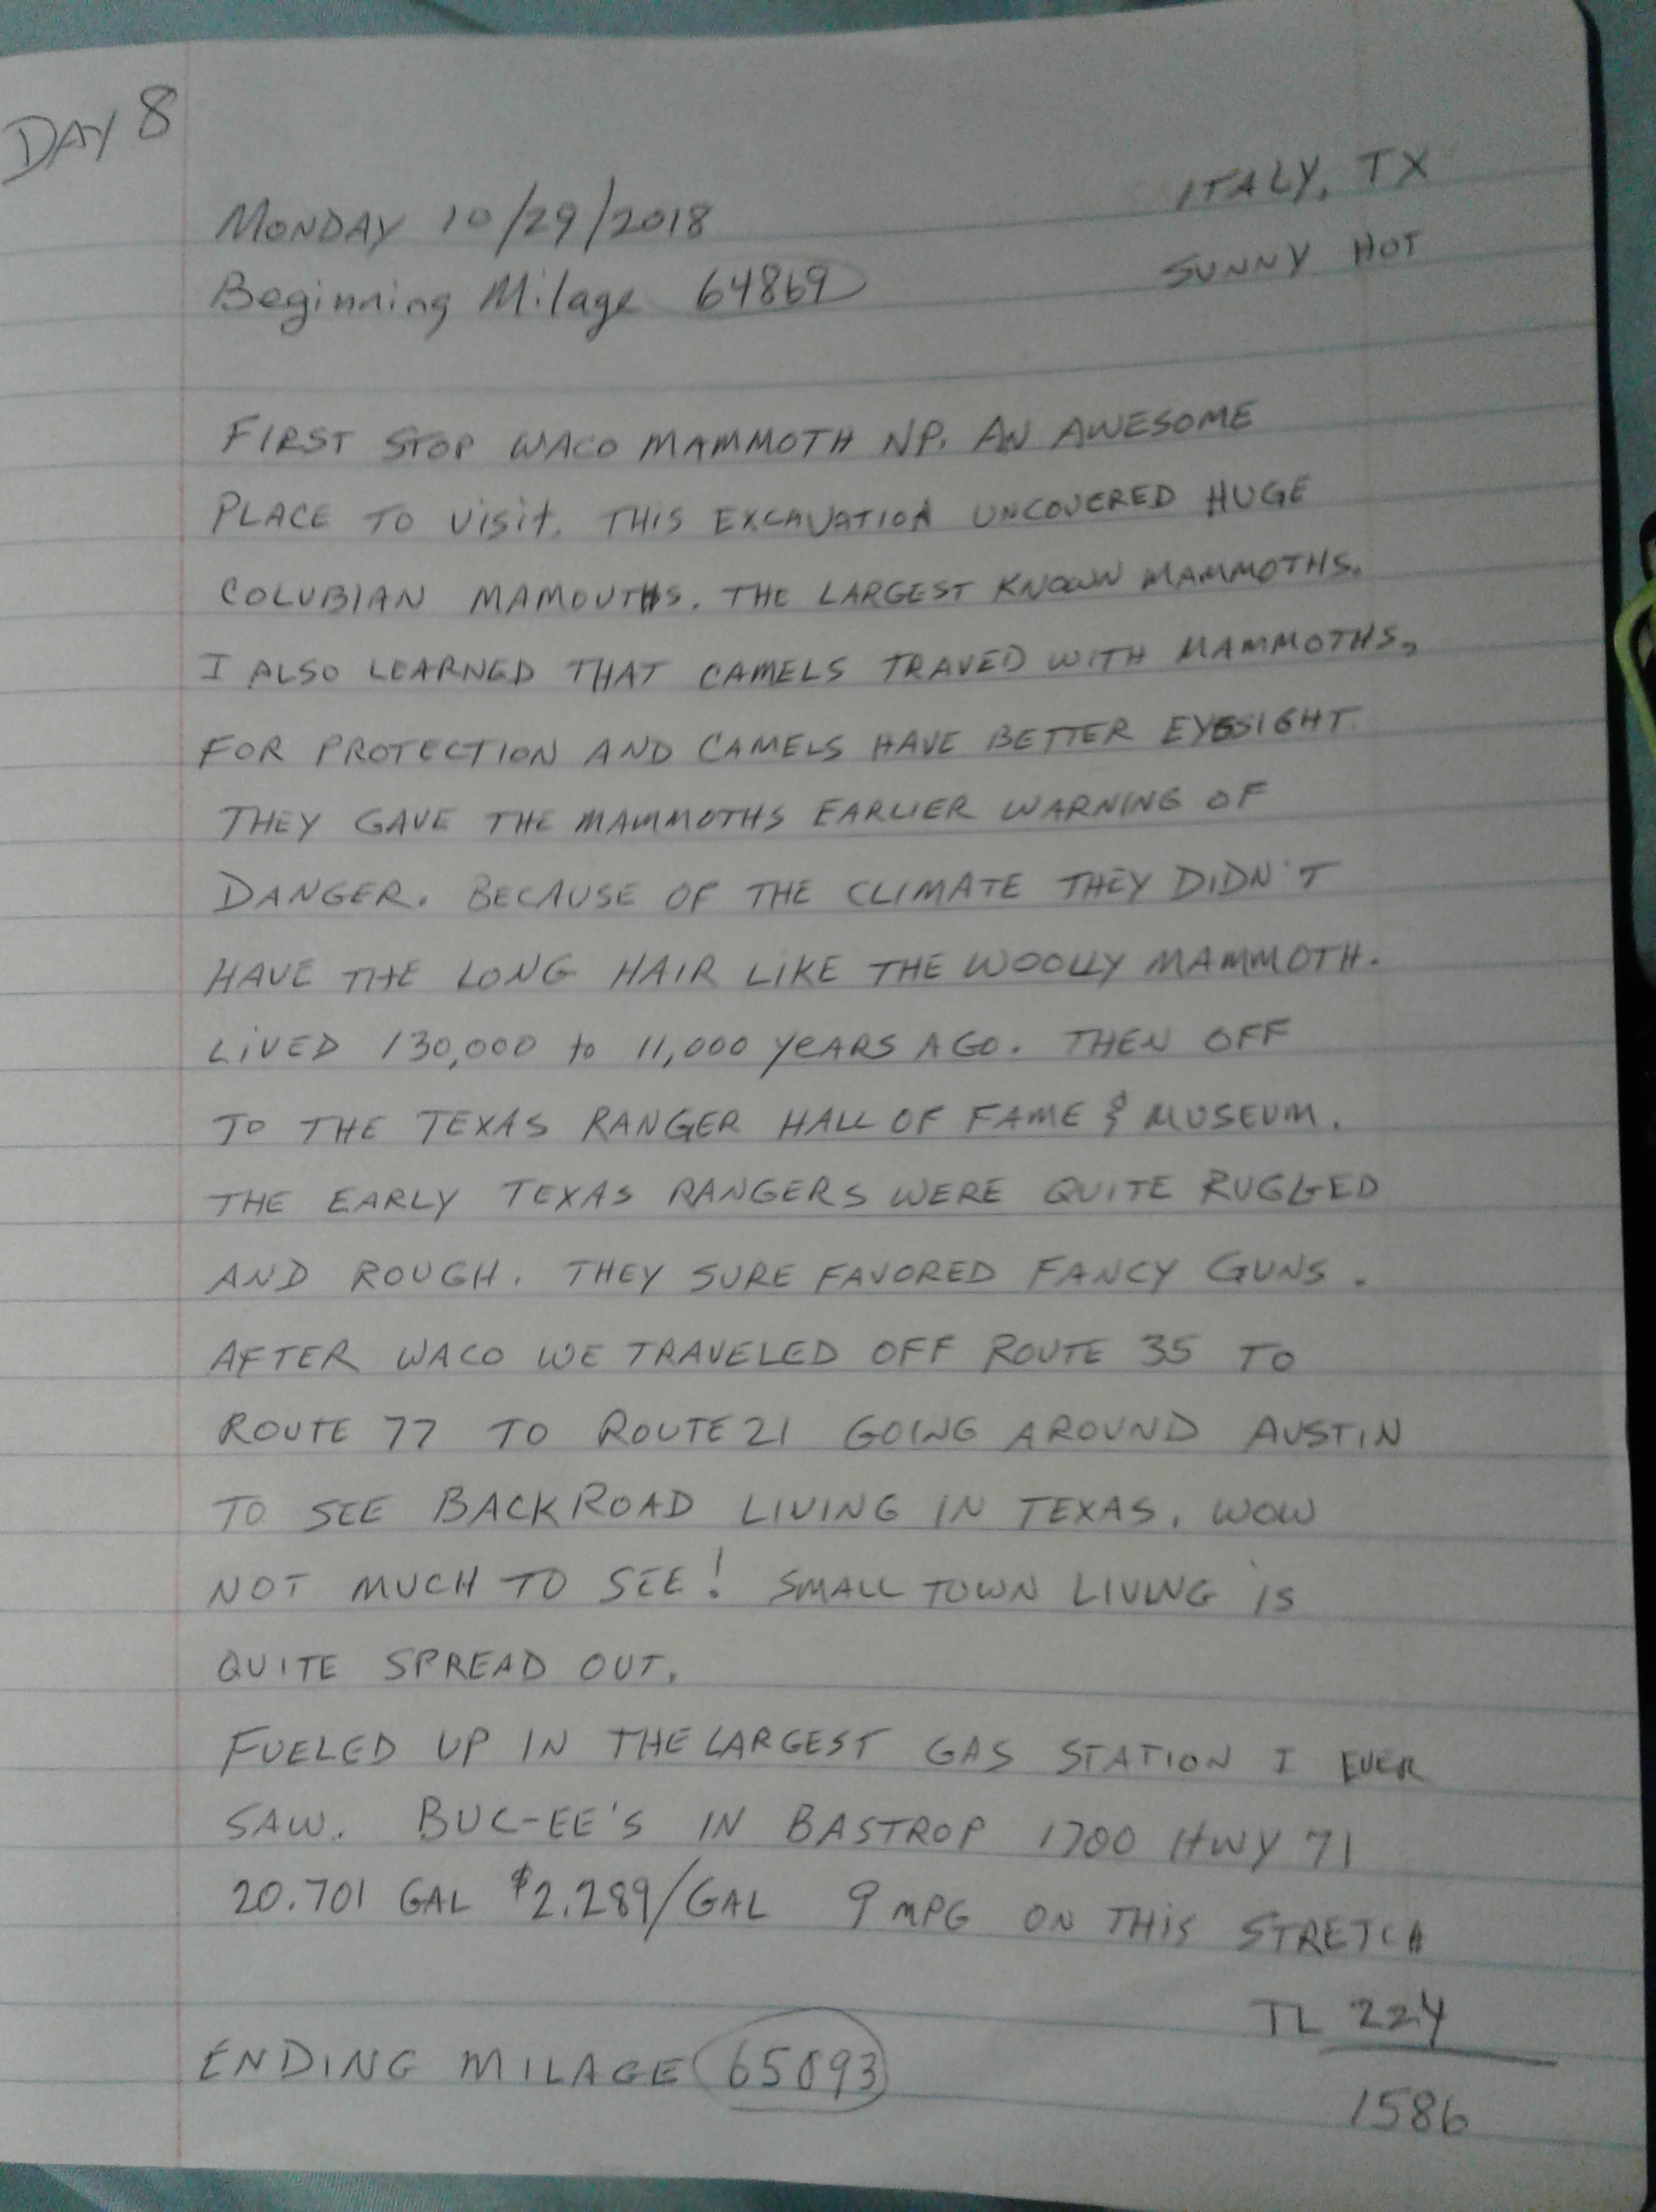 DAY 8
ITALY, TX
MONDAY 10/29/2018
SUNNY HOT
Beginning Milage 64869
FIRST STOP WACO MAMMOTH NP. AN AWESOME
PLACE TO Visit. THIS EXCAVATION UNCOVERED HUGE
COLUBIAN MAMOUTHS. THE LARGEST KNOWN MAMMOTHS.
I ALSO LEARNED THAT CAMELS TRAVED WITH MAMMOTHS,
FOR PROTECTION AND CAMELS HAVE BETTER EYESIGHT.
THEY GAVE THE MAMMOTHS EARLIER WARNING OF
DANGER. BECAUSE OF THE CLIMATE THEY DIDN'T
HAVE THE LONG HAIR LIKE THE WOOLLY MAMMOTH.
LIVED 130,000 to 11,000 YEARS AGO. THEN OFF
TO THE TEXAS RANGER HALL OF FAME & MUSEUM.
THE EARLY TEXAS RANGERS WERE QUITE RUGGED
AND ROUGH. THEY SURE FAVORED FANCY GUNS.
AFTER WACO WE TRAVELED OFF ROUTE 35 TO
ROUTE 77 TO ROUTE 21 GOING AROUND AUSTIN
TO SEE BACK ROAD LIVING IN TEXAS. WOW
NOT MUCH TO SEE! SMALL TOWN LIVING IS
QUITE SPREAD OUT.
FUELED UP IN THE LARGEST GAS STATION I EVER
SAW. BUC-EE'S IN BASTROP 1700 HWY 71
20.701 GAL $2.289/GAL 9 MPG ON THIS STRETCH
TL 224
ENDING MILAGE 65093
1586